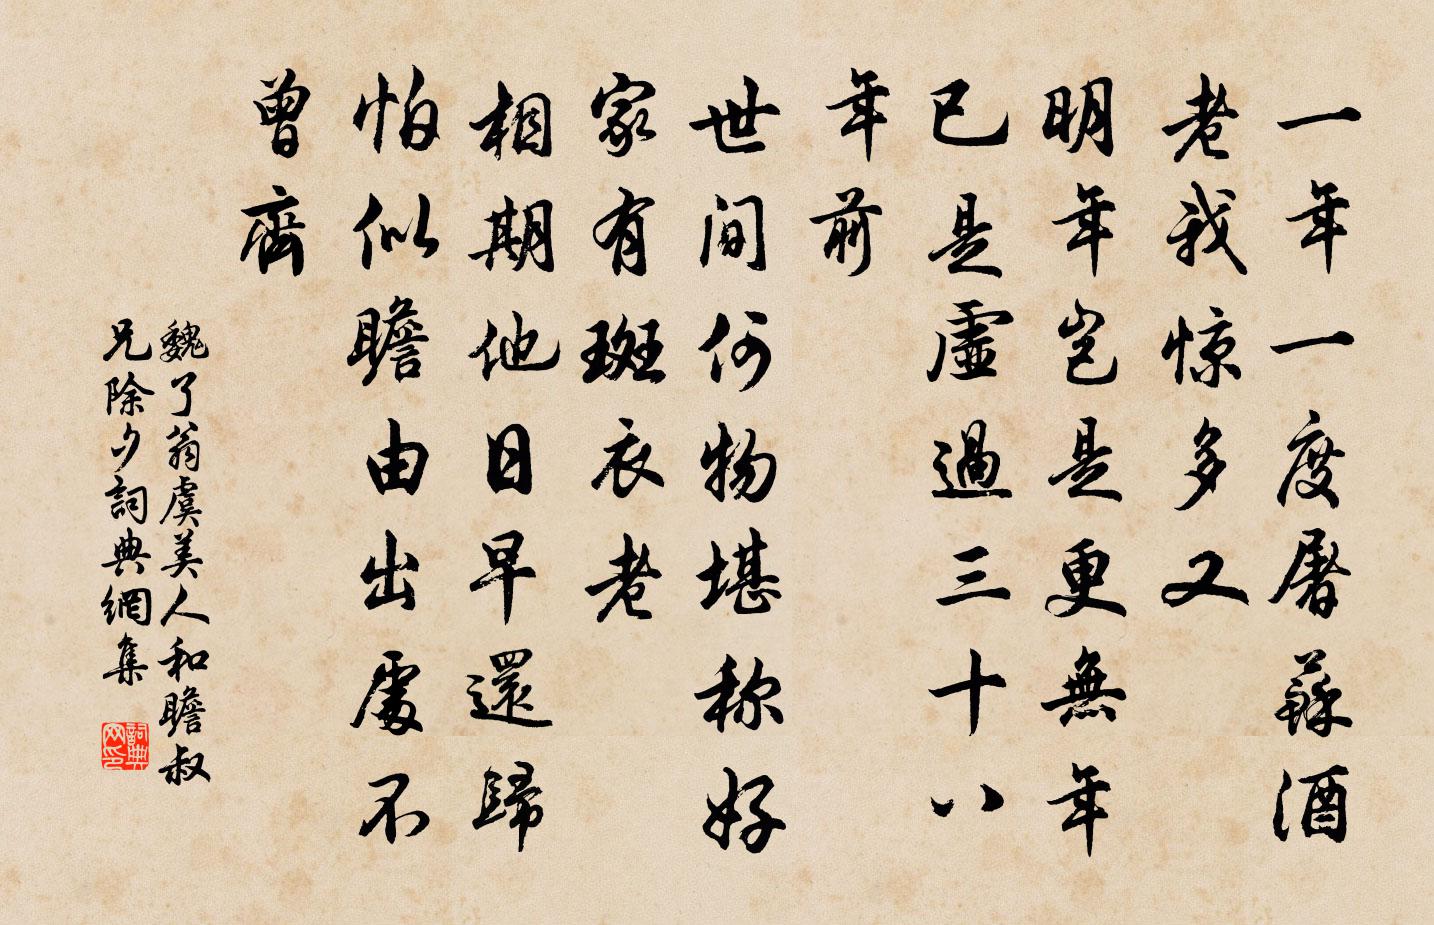 一年一度屠蘇酒
老我惊多又
明年岂是更無年
已是虛過三十八
年前
世间何物堪称好
家有斑衣老
相期他日早還歸
怕似瞻由出處不
曾齊
魏了翁虞美人和瞻叔
兄除夕詞典網集
詞典
网印